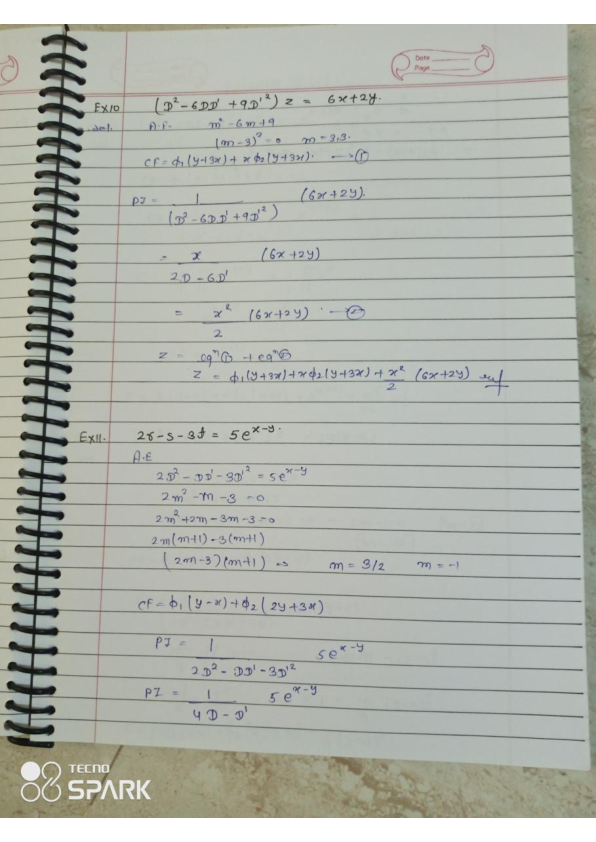 Date
Page
Ex10 (D² - 6DD' + 9D'²) z = 6x + 2y.
Sol. A.E. m² - 6m + 9
(m-3)² = 0 m = 3,3.
CF = ϕ₁(y+3x) + xϕ₂(y+3x). → ①
PI = 1 / (D² - 6DD' + 9D'²) (6x + 2y).
= x / 2D - 6D' (6x + 2y)
= x² / 2 (6x + 2y) . → ②
z = eqⁿ ① + eqⁿ ②
z = ϕ₁(y+3x) + xϕ₂(y+3x) + x²/2 (6x + 2y)
Ex11. 2r - s - 3t = 5e^(x-y).
A.E
2D² - DD' - 3D'² = 5e^(x-y)
2m² - m - 3 = 0.
2m² + 2m - 3m - 3 = 0
2m(m+1) - 3(m+1)
(2m-3)(m+1) ⇒ m = 3/2 m = -1
CF = ϕ₁(y-x) + ϕ₂(2y+3x)
PI = 1 / 2D² - DD' - 3D'² 5e^(x-y)
PI = 1 / 4D - D' 5e^(x-y)
TECNO
SPARK